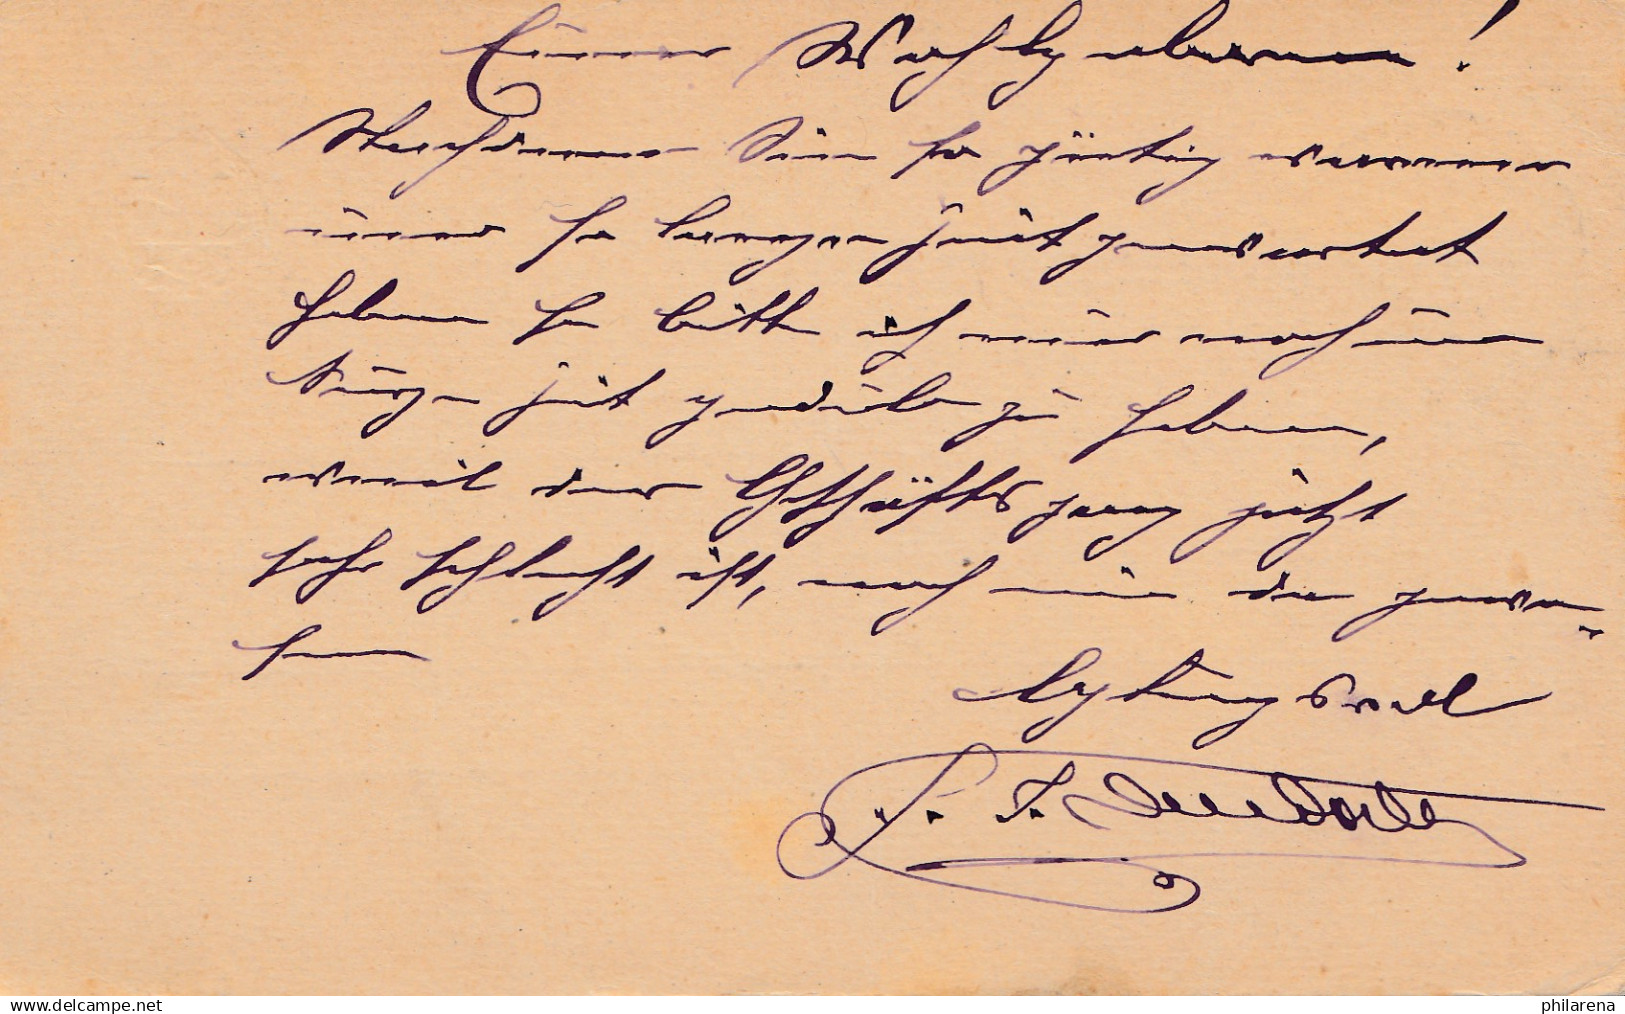 Euer Wohlgeboren!
Nachdem Sie so gütig waren
und so lange Zeit gewartet
haben so bitte ich nur noch um
kurze Zeit geduld zu haben,
weil der Geschäftsgang jetzt
sehr schlecht ist, nach wie da gewe-
sen
Achtungsvoll
www.delcampe.net
philarena